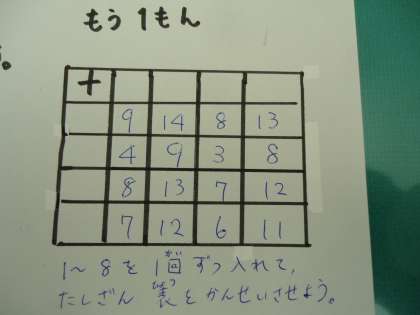 もう1もん
。
+
9 14 8 13
4 9 3 8
8 13 7 12
7 12 6 11
1〜8を1個ずつ入れて、
たしざん 表をかんせいさせよう。